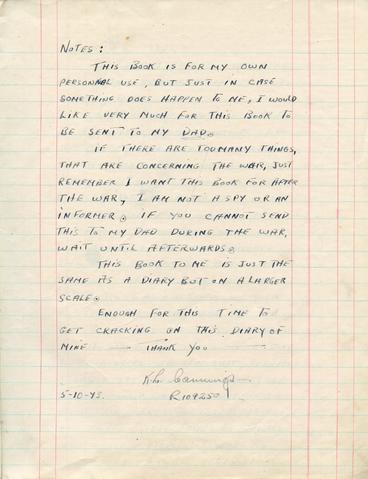 NOTES:
THIS BOOK IS FOR MY OWN
PERSONNAL USE, BUT JUST IN CASE
SOMETHING DOES HAPPEN TO ME, I WOULD
LIKE VERY MUCH FOR THIS BOOK TO
BE SENT TO MY DAD.
IF THERE ARE TOO MANY THINGS,
THAT ARE CONCERNING THE WAR, JUST
REMEMBER I WANT THIS BOOK FOR AFTER
THE WAR, I AM NOT A SPY OR AN
INFORMER. IF YOU CANNOT SEND
THIS TO MY DAD DURING THE WAR,
WAIT UNTIL AFTERWARDS.
THIS BOOK TO ME IS JUST THE
SAME AS A DIARY BUT ON A LARGER
SCALE.
ENOUGH FOR THIS TIME TO
GET CRACKING ON THIS DIARY OF
MINE — THANK YOU —
5-10-43.